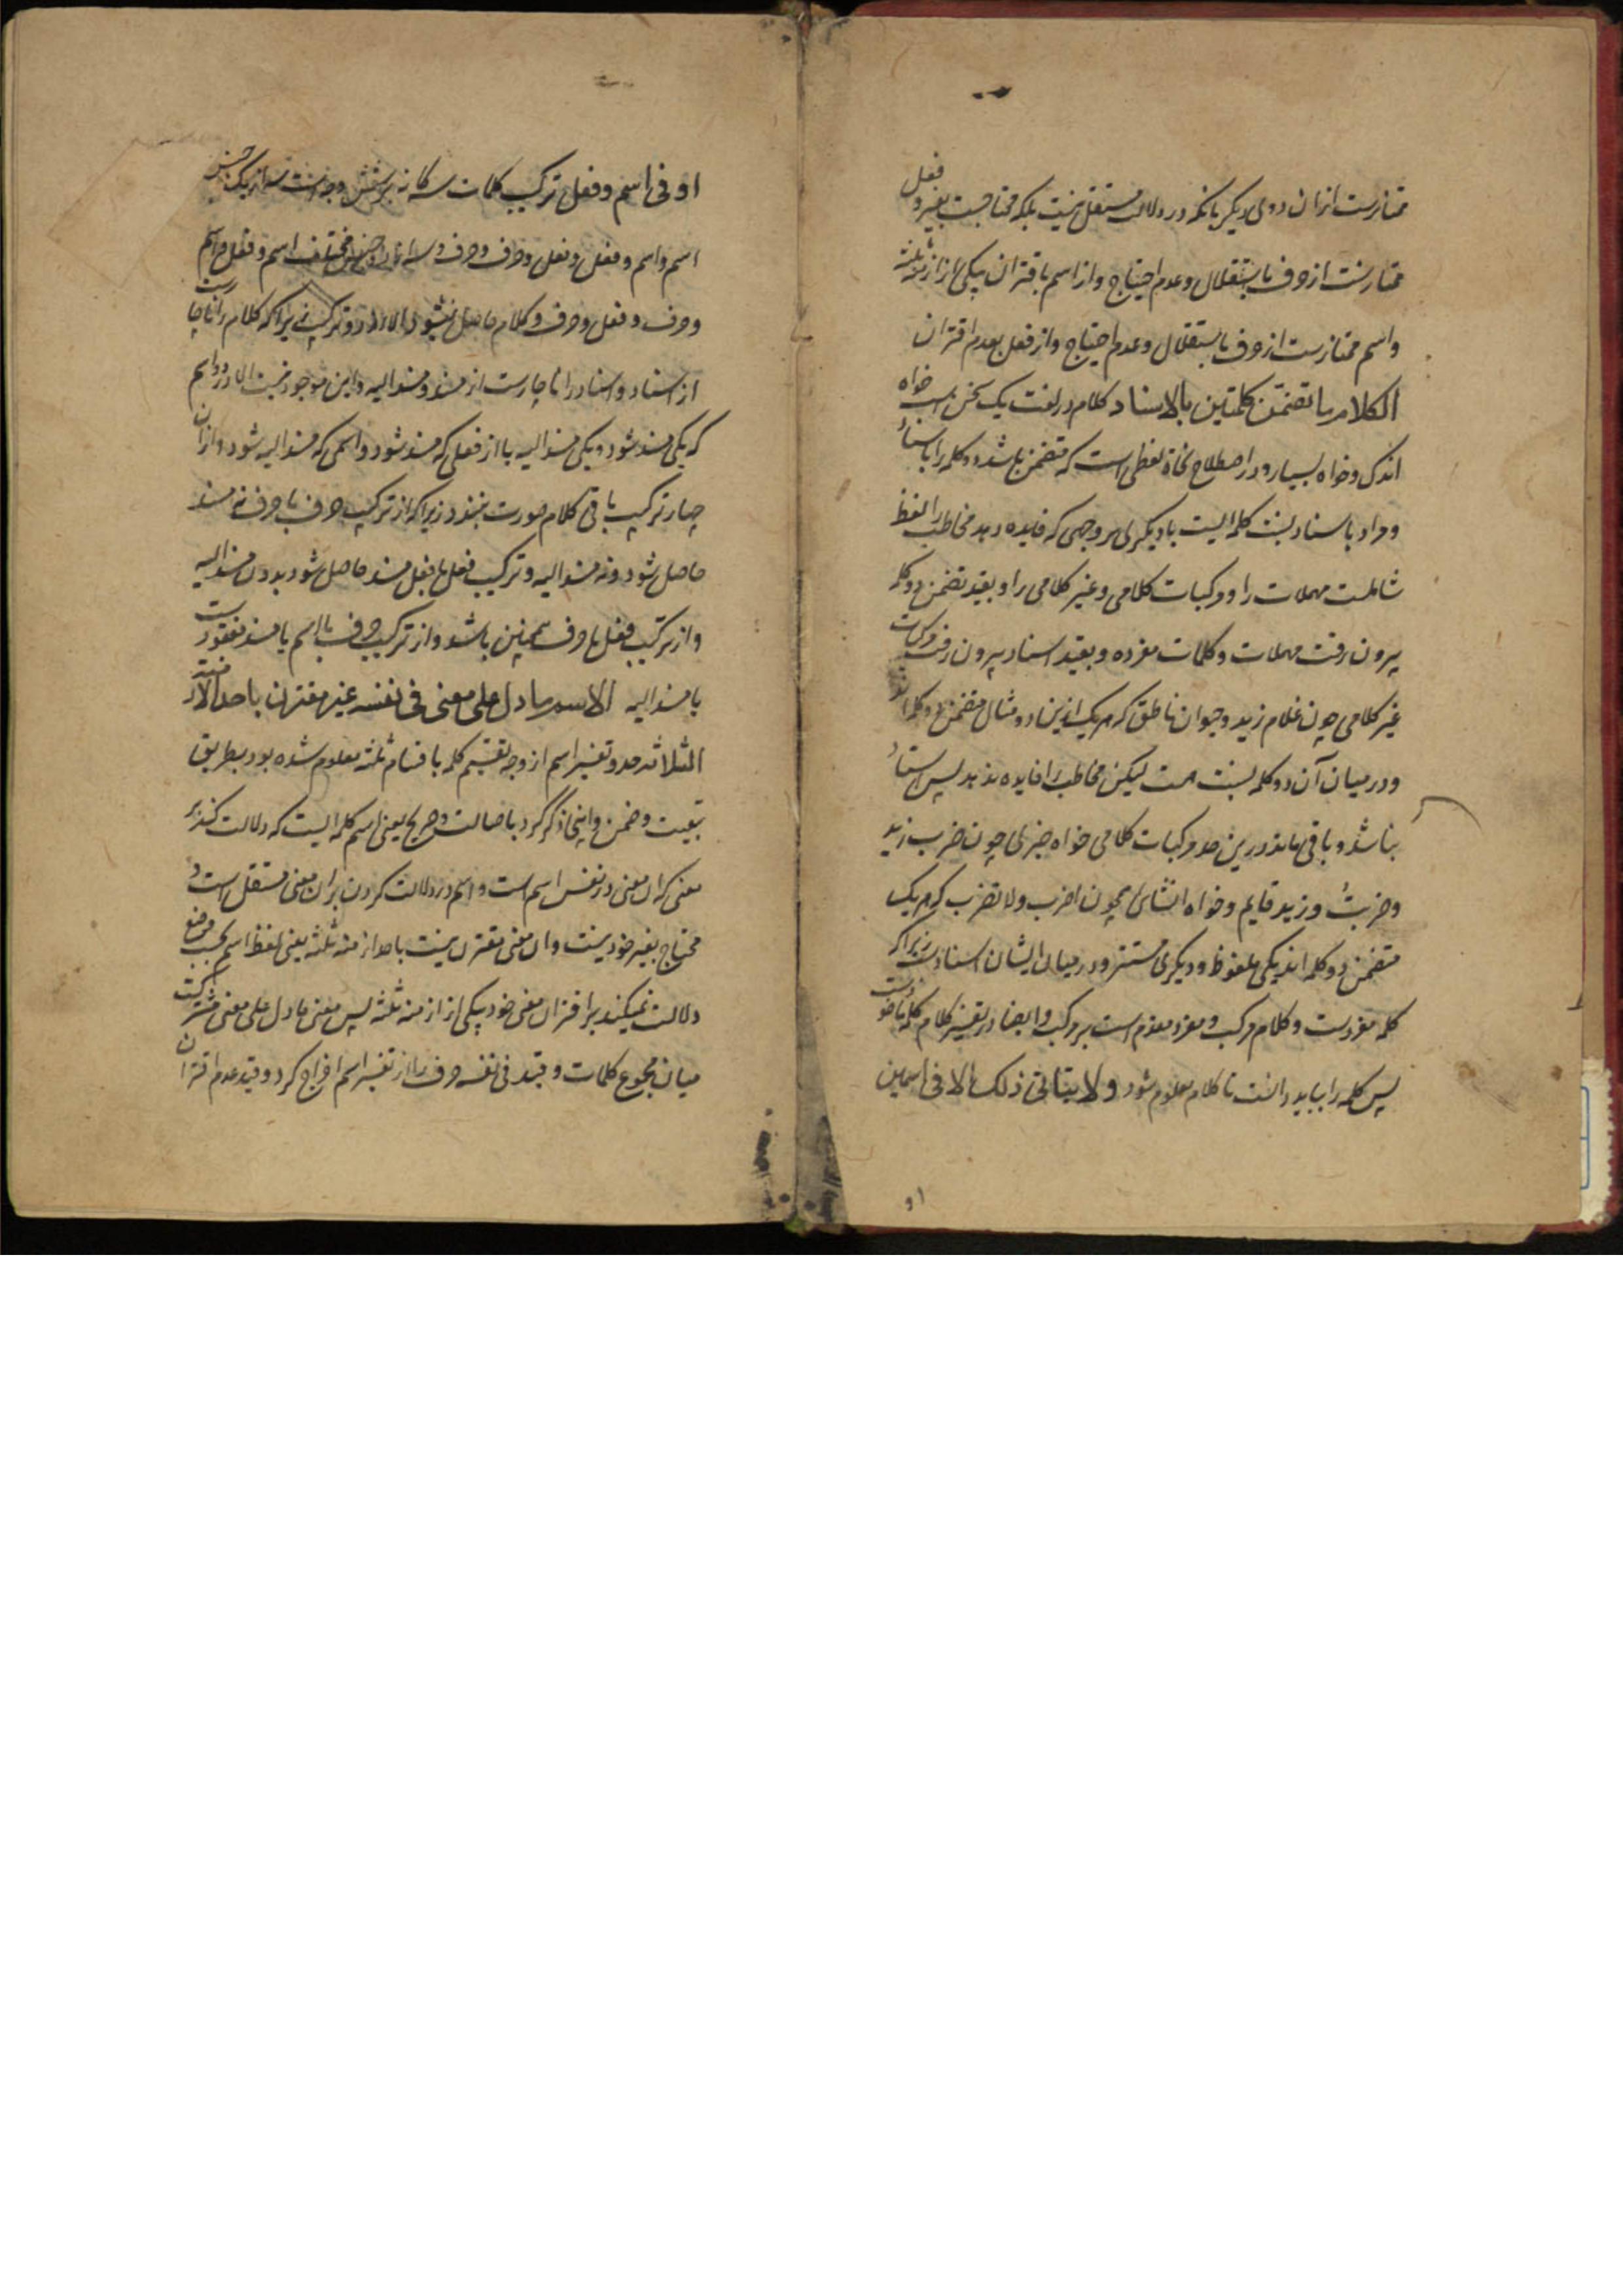 ممتازست ازان دوی دیگر بانکه در دلالت مستقل نیست بلکه محتاجست بغیر و فعل
ممتازست از حرف باستقلال و عدم احتیاج و از اسم باقتران بیکی از ازمنه ثلثه
و اسم ممتازست از حرف باستقلال و عدم احتیاج و از فعل بعدم اقتران
الکلام ما تضمن کلمتین بالاسناد کلام در لغت یک سخن است خواه
اندک و خواه بسیار و در اصطلاح نحاة لفظی است که متضمن باشد دو کلمه را باسناد
و مراد باسناد نسبت کلمه ایست بادیگری بر وجهی که فایده دهد مخاطب را لفظ
شاملست مهملات را و مرکبات کلامی و غیر کلامی را و بقید تضمن دو کلمه
بیرون رفت مهملات و کلمات مفرده و بقید اسناد بیرون رفت مرکبات
غیر کلامی چون غلام زید و حیوان ناطق که هر یک ازین دو مثال متضمن دو کلمه اند
و در میان آن دو کلمه نسبت هست لیکن مخاطب را فایده ندهد پس اسناد
نباشد و باقی ماند درین حد مرکبات کلامی خواه خبری چون ضرب زید
و ضربت و زید قایم و خواه انشای همچون اضرب و لا تضرب که هر یک
متضمن دو کلمه اند یکی ملفوظ و دیگری مستتر و در میان ایشان اسنادست زیرا که
کلمه مفردست و کلام مرکب و مفرد مقدم است بر مرکب و ایضا در تفسیر کلام کلمه ماخوذست
پس کلمه را بباید دانست تا کلام معلوم شود و لا یتاتی ذلک الا فی اسمین
او
او فی اسم و فعل ترکیب کلمات سه کانه بر شش وجه است سه از یک جنس
اسم و اسم و فعل و فعل و حرف و حرف و سه از دو جنس مختلف اسم و فعل و اسم
و حرف و فعل و حرف و کلام حاصل نشود الا از دو ترکیب زیرا که کلام را ناچارست
از اسناد و اسناد را ناچارست از مسند و مسند الیه و این موجود نیست الا در دو اسم
که یکی مسند شود و یکی مسند الیه یا از فعلی که مسند شود و اسمی که مسند الیه شود و ازان
چهار ترکیب باقی کلام صورت نبندد زیرا که از ترکیب حرف با حرف نه مسند
حاصل شود و نه مسند الیه و ترکیب فعل با فعل مسند حاصل شود بدون مسند الیه
و از ترکیب فعل با حرف همچنین باشد و از ترکیب حرف با اسم یا مسند مفقودست
یا مسند الیه الاسم ما دل علی معنی فی نفسه غیر مقترن باحد الازمنة
الثلاثه حد و تفسیر اسم از وجه تقسیم کلمه باقسام ثلثه معلوم شده بود بطریق
تبعیت و ضمن و اینجا ذکر کرد باصالت و صریح یعنی اسم کلمه ایست که دلالت کند بر
معنی که ان معنی در نفس اسم است و اسم در دلالت کردن بران معنی مستقل است و
محتاج بغیر خود نیست و ان معنی مقترن نیست باحد ازمنه ثلثه یعنی لفظ اسم بحسب وضع
دلالت نمیکند بر اقتران معنی خود بیکی از ازمنه ثلثه پس معنی ما دل علی معنی مشترکست
میان مجموع کلمات و قید فی نفسه حرف را از تفسیر اسم اخراج کرد و قید عدم اقتران